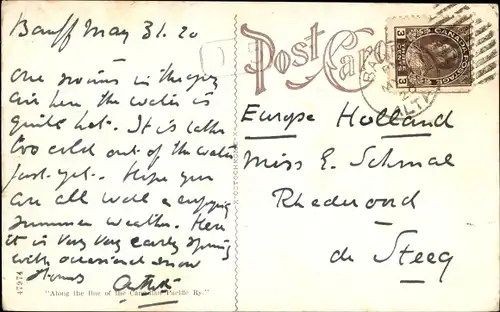 Banff May 31. 20
One swims in the open
air here, the water is
quite hot. It is rather
too cold out of the water
just yet. Hope you
are all well & enjoying
summer weather. Here
it is very very early spring
with occasional snow
storms
47974
"Along the line of the Canadian Pacific Ry."
Post Card
CANADA POSTAGE
3 3
BANFF
ALTA
Europe Holland
Miss E. Schmal
Rhederoord
de Steeg